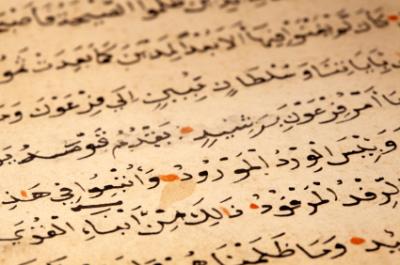 ظلموا الصيحة فأصبـ
كَأَن لَّمْ يَغْنَوْا فِيهَا أَلَا بُعْدًا لِّمَدْيَنَ كَمَا بَعِدَتْ ثَمُو
بِآيَاتِنَا وَسُلْطَانٍ مُّبِينٍ إِلَى فِرْعَوْنَ وَمَـ
مَا أَمْرُ فِرْعَوْنَ بِرَشِيدٍ يَقْدُمُ قَوْمَهُ
وَبِئْسَ الْوِرْدُ الْمَوْرُودُ وَأُتْبِعُوا فِي هَذِ
الرِّفْدُ الْمَرْفُودُ ذَلِكَ مِنْ أَنْبَاءِ الْقُرَى
ـيدٌ وَمَا ظَلَمْنَا